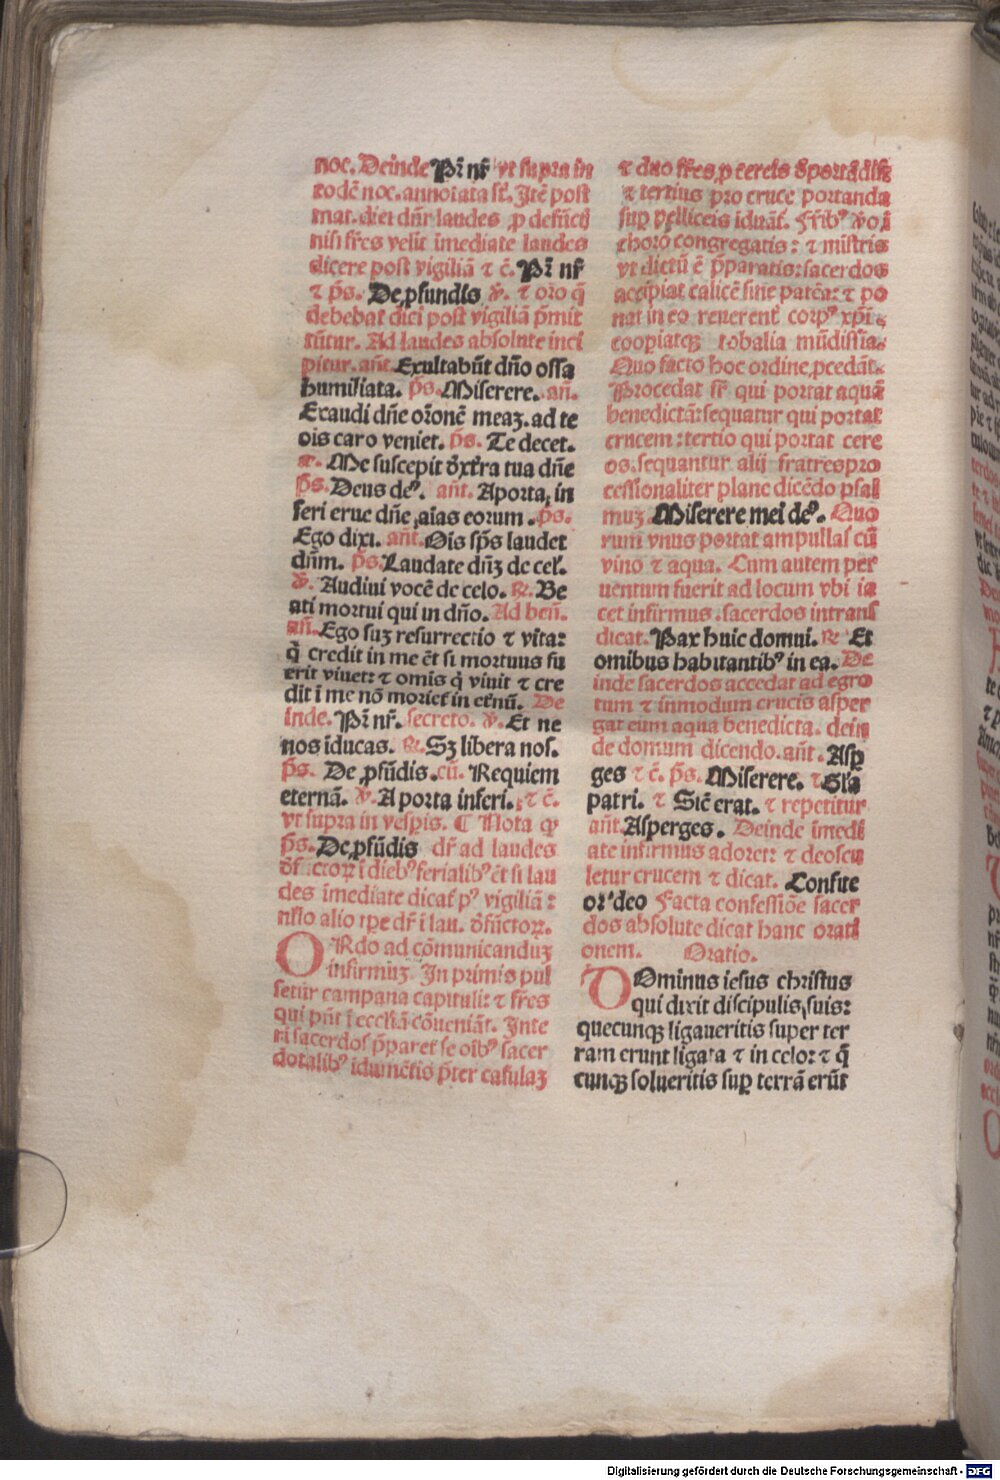 noc. Deinde Pr̄ nr̄ vt supra in
eodē noc. annotata st̄. Itē post
mat. diei dn̄r laudes ꝑ defūctꝭ
nisi fr̄es velīt īmediate laudes
dicere post vigiliā ⁊ c̄. Pr̄ nr̄
⁊ p̄s. De ꝓfundis ℣. ⁊ oro q̄
debebat dici post vigiliā p̄mit
tūtur. Ad laudes absolute inci
pitur. an̄t. Exultabūt dn̄o ossa
humiliata. p̄s. Miserere. an̄.
Exaudi dn̄e or̄onē meaꝫ. ad te
oīs caro veniet. p̄s. Te decet.
a. Me suscepit dext̄ra tua dn̄e
p̄s. Deus deꝰ. an̄t. A porta in
feri erue dn̄e aīas eorum. p̄s.
Ego dixi. an̄t. Oīs sp̄s laudet
dn̄m. p̄s. Laudate dn̄ꝫ de cel̄.
℣. Audiui vocē de celo. ℟. Be
ati mortui qui in dn̄o. Ad ben̄.
an̄. Ego suꝫ resurrectio ⁊ vita:
q̄ credit in me ēt si mortuus fu
erit viuet: ⁊ omīs q̄ viuit ⁊ cre
dit ī me nō moriet̄ in et̄nū. De
inde. Pr̄ nr̄. secreto. ℣. Et ne
nos īducas. ℟. Sꝫ libera nos.
p̄s. De ꝓfūdis. cū. Requiem
eternā. ℣. A porta inferi. ⁊ c̄.
vt supra in vesꝑis. ¶ Nota ꝙ
p̄s. De ꝓfūdis dr̄ ad laudes
defūctoꝝ ī diebꝰ ferialibꝰ ēt si lau
des īmediate dicāt̄ pꝰ vigiliā:
nisio alio tꝑe dr̄ ī lau. defūctoꝝ.
ORdo ad cōmunicanduꝫ
infirmuꝫ. In primis pul
setur campana capituli: ⁊ fr̄es
qui pn̄t ī ecclīā cōueniāt. Inte
rī sacerdos p̄paret se oībꝰ sacer
dotalibꝰ īdumētis p̄ter casulaꝫ
⁊ duo fr̄es ꝓ cereis deportādis
⁊ tertius pro cruce portanda
suꝑ pelliceis īduāt̄. Fr̄ibꝰ v̄o ī
choro congregatis: ⁊ mīstris
vt dictū ē p̄paratis: sacerdos
accipiat calicē sine patēa: ⁊ po
nat in eo reuerent̄ corpꝰ xp̄i
cooꝑiatqꝫ tobalia mūdissīa.
Quo facto hoc ordine ꝓcedāt.
Procedat fr̄ qui portat aquā
benedictā: sequatur qui portat
crucem: tertio qui portat cere
os. sequantur alij fratres pro
cessionaliter plane dicēdo psal
muꝫ. Miserere mei deꝰ. Quo
rum vnus portat ampullas cū
vino ⁊ aqua. Cum autem per
uentum fuerit ad locum vbi ia
cet infirmus. sacerdos intrans
dicat. Pax huic domui. ℟ Et
omībus habitantibꝰ in ea. De
inde sacerdos accedat ad egro
tum ⁊ inmodum crucis asper
gat eum aqua benedicta. dein
de domum dicendo. an̄t. Asꝑ
ges ⁊ c̄. p̄s. Miserere. ⁊ Gl̄a
patri. ⁊ Sic̄ erat. ⁊ repetitur
an̄t. Asperges. Deinde īmedi
ate infirmus adoret: ⁊ deoscu
letur crucem ⁊ dicat. Confite
or deo Facta confessiōe sacer
dos absolute dicat hanc orati
onem. Oratio.
DOminus iesus christus
qui dixit discipulis suis:
quecunqꝫ ligaueritis super ter
ram erunt ligata ⁊ in celo: ⁊ q̄
cunqꝫ solueritis suꝑ terrā erūt
Digitalisierung gefördert durch die Deutsche Forschungsgemeinschaft - DFG